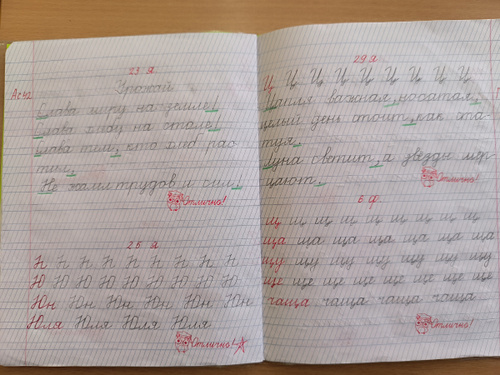 23 Я
Урожай
Слава миру на земле!
Слава хлебу на столе!
Слава тем, кто хлеб рас
тил,
Не жалел трудов и сил!
Отлично!
25 Я
Ю Ю Ю Ю Ю Ю Ю Ю
Юн Юн Юн Юн Юн Юн
Юля Юля Юля Юля
Отлично!
29 Я
Ц Ц Ц Ц Ц Ц Ц Ц Ц
Цапля важная, носатая,
целый день стоит, как ста
туя.
Луна светит, а звёзды мер
цают.
Отлично!
5 Ф
щ щ щ щ щ щ щ щ щ
ща ща ща ща ща ща ща
щу щу щу щу щу щу щу
ще ще ще ще ще ще ще
чаща чаща чаща чаща
Отлично!